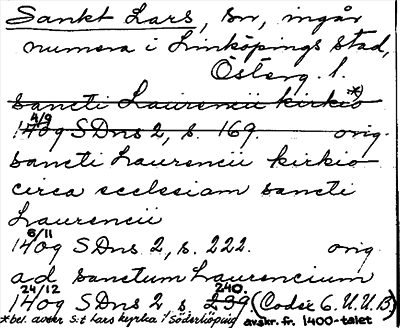 Sankt Lars, sn, ingår
numera i Linköpings stad,
Österg. l.
sancti Laurencii kirkio *)
4/9
1409 SDns 2, s. 169. orig.
sancti Laurencii kirkio
circa ecclesiam sancti
Laurencii
6/11
1409 SDns. 2, s. 222. orig.
ad sanctum Laurencium
24/12 240.
1409 SDns 2, s. 239 (Codex 6. U.U.B)
*bet. avser S:t Lars kyrka i Söderköping avskr. fr. 1400-talet